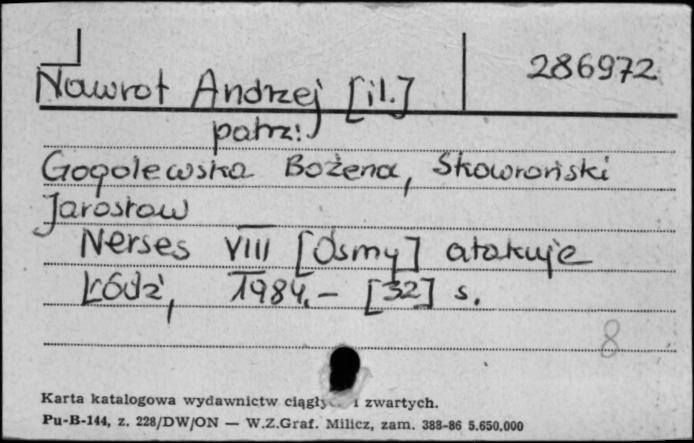 286972
Nawrot Andrzej [il.]
patrz:
Gogolewska Bożena, Skowroński
Jarosław
Nerses VIII [Ósmy] atakuje
Łódź, 1984.- [32] s.
8
Karta katalogowa wydawnictw i zwartych.
Pu-B-144, z. 228/DW/ON — W.Z.Graf. Milicz, zam. 388-86 5.650.000